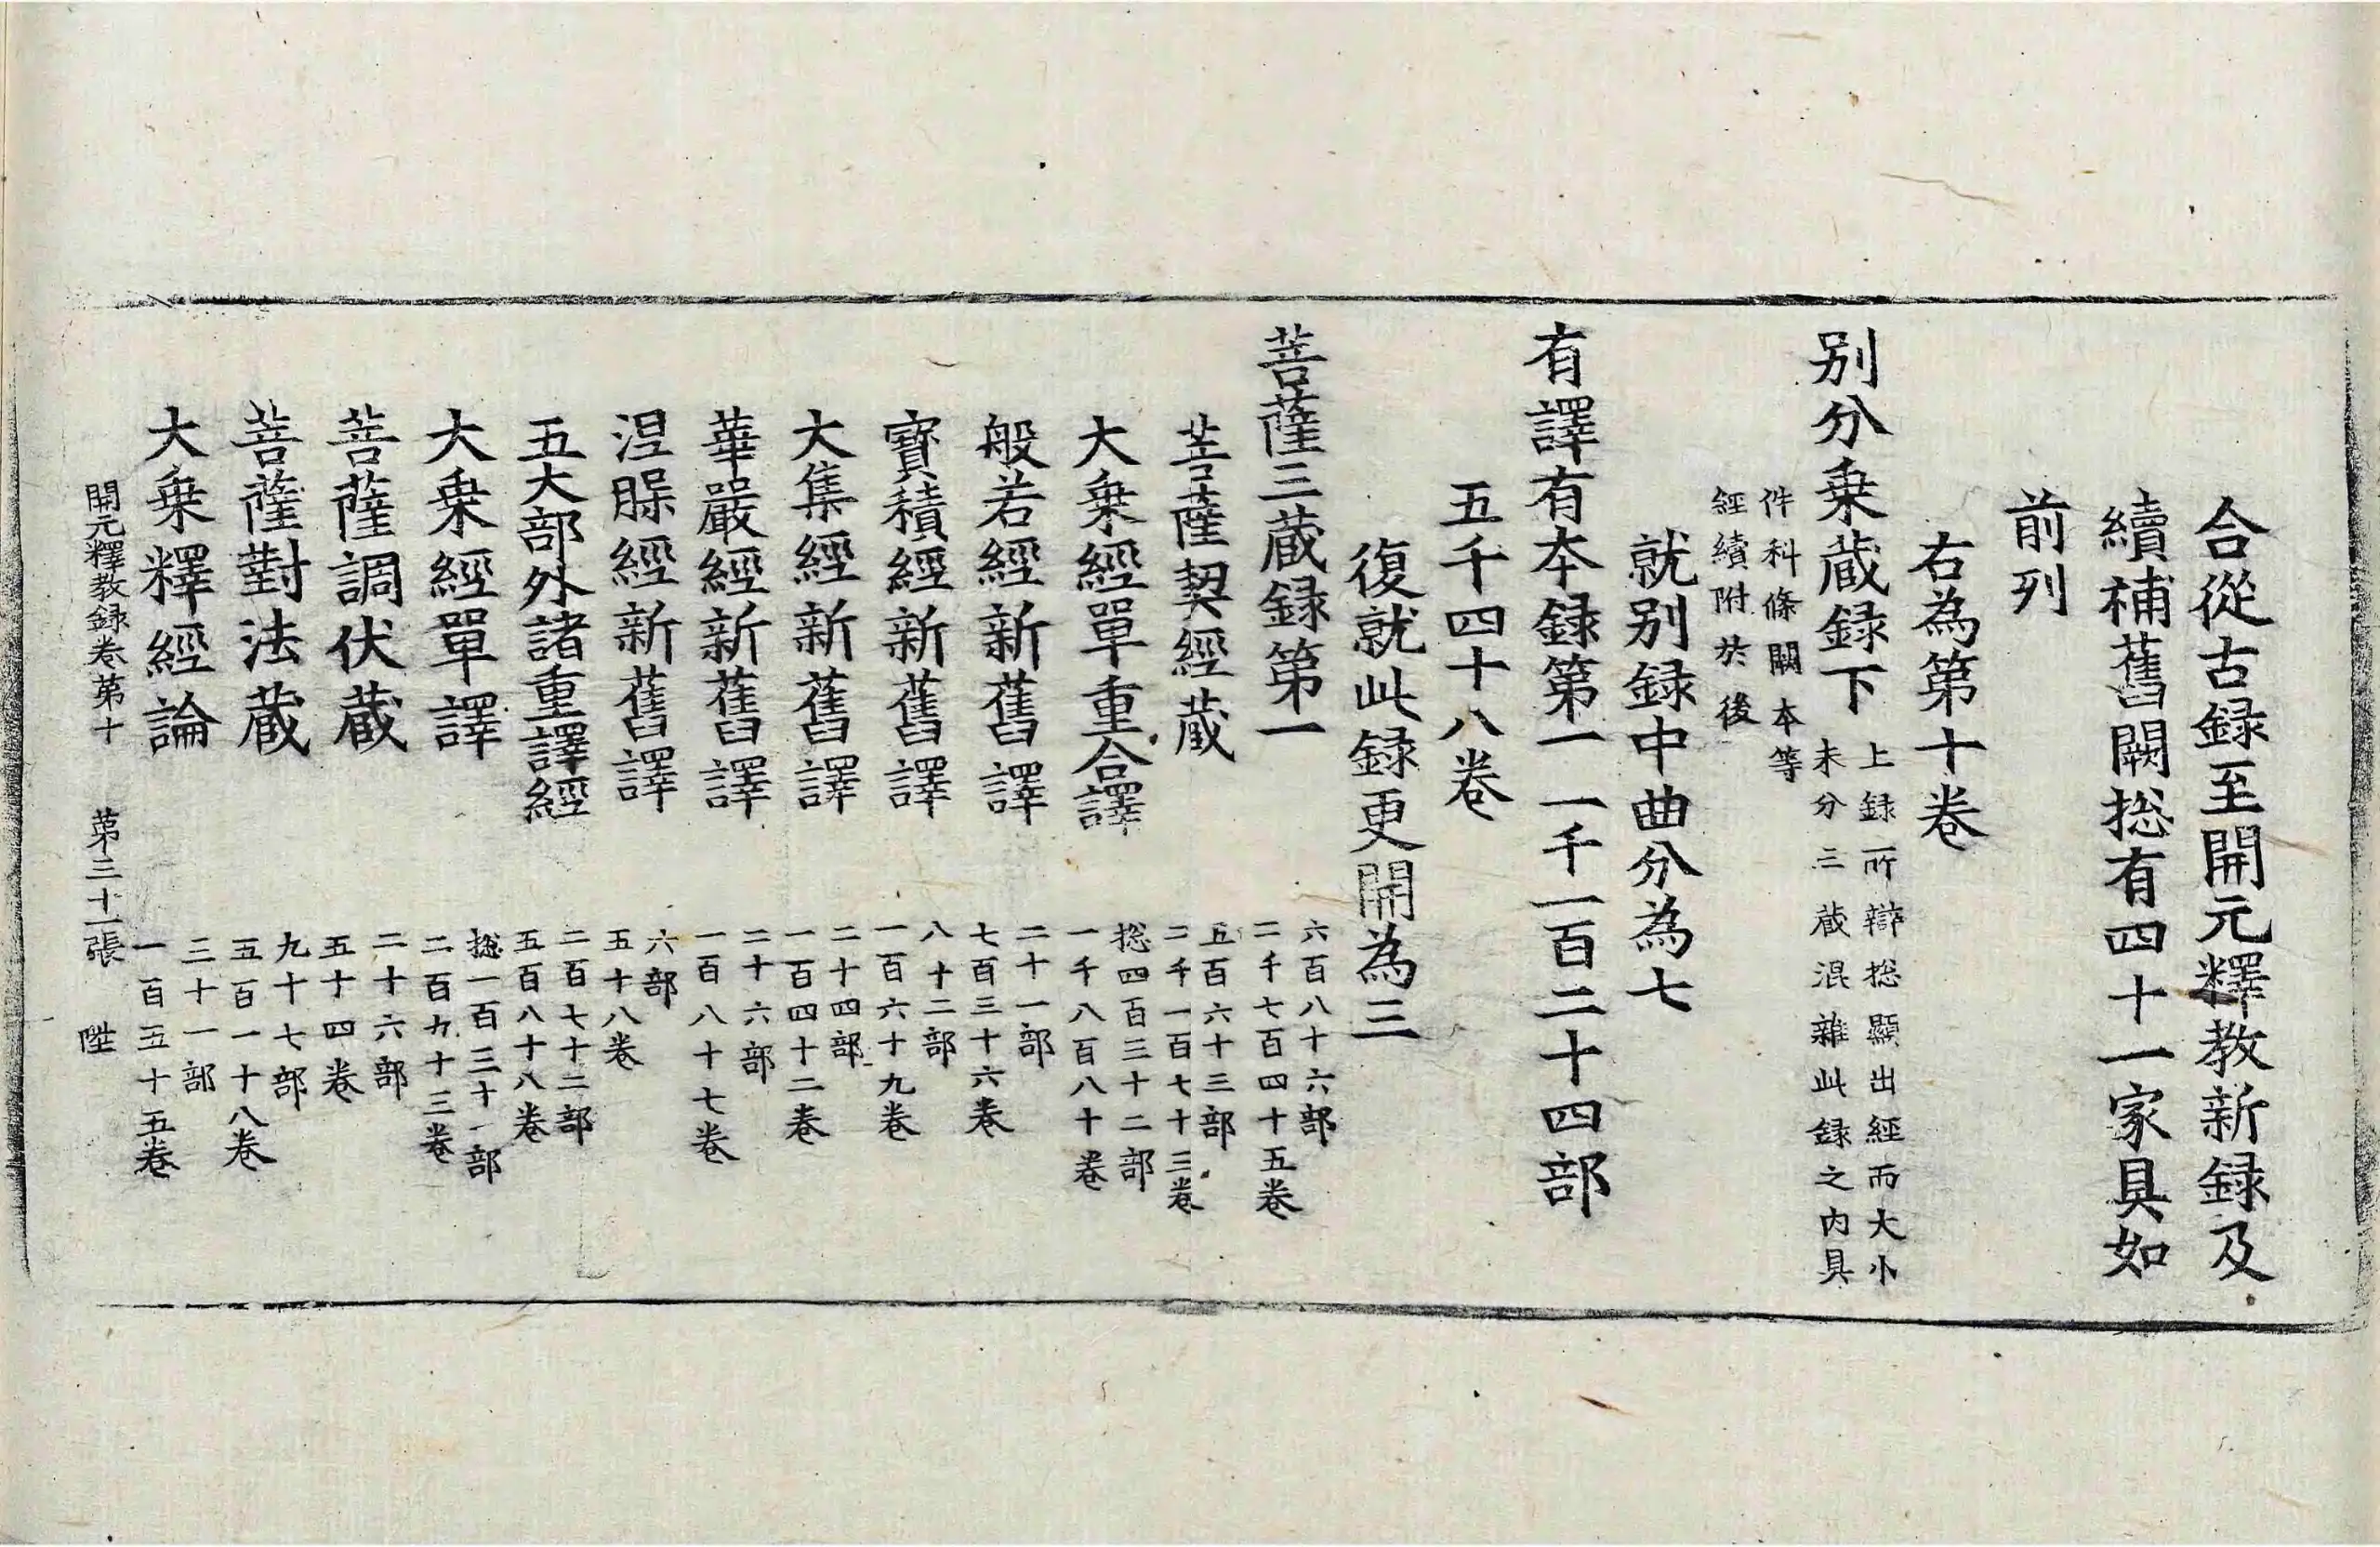 合從古録至開元釋教新録及
續補舊闕捴有四十一家具如
前列
右為第十卷
别分乗蔵録下
上録所辯捴顯出經而大小
未分三蔵混雜此録之内具
件科條闕本等
經續附於後
就别録中曲分為七
有譯有本録第一 一千一百二十四部
五千四十八卷
復就此録更開為三
菩薩三蔵録第一
六百八十六部
二千七百四十五卷
菩薩契經蔵
五百六十三部
二千一百七十三卷
大乗經單重合譯
捴四百三十二部
一千八百八十卷
般若經新舊譯
二十一部
七百三十六卷
寳積經新舊譯
八十二部
一百六十九卷
大集經新舊譯
二十四部
一百四十二卷
華嚴經新舊譯
二十六部
一百八十七卷
涅槃經新舊譯
六部
五十八卷
五大部外諸重譯經
二百七十二部
五百八十八卷
大乗經單譯
捴一百三十一部
二百九十三卷
菩薩調伏蔵
二十六部
五十四卷
菩薩對法蔵
九十七部
五百一十八卷
大乗釋經論
三十一部
一百五十五卷
開元釋教録卷第十 第三十一張 陞